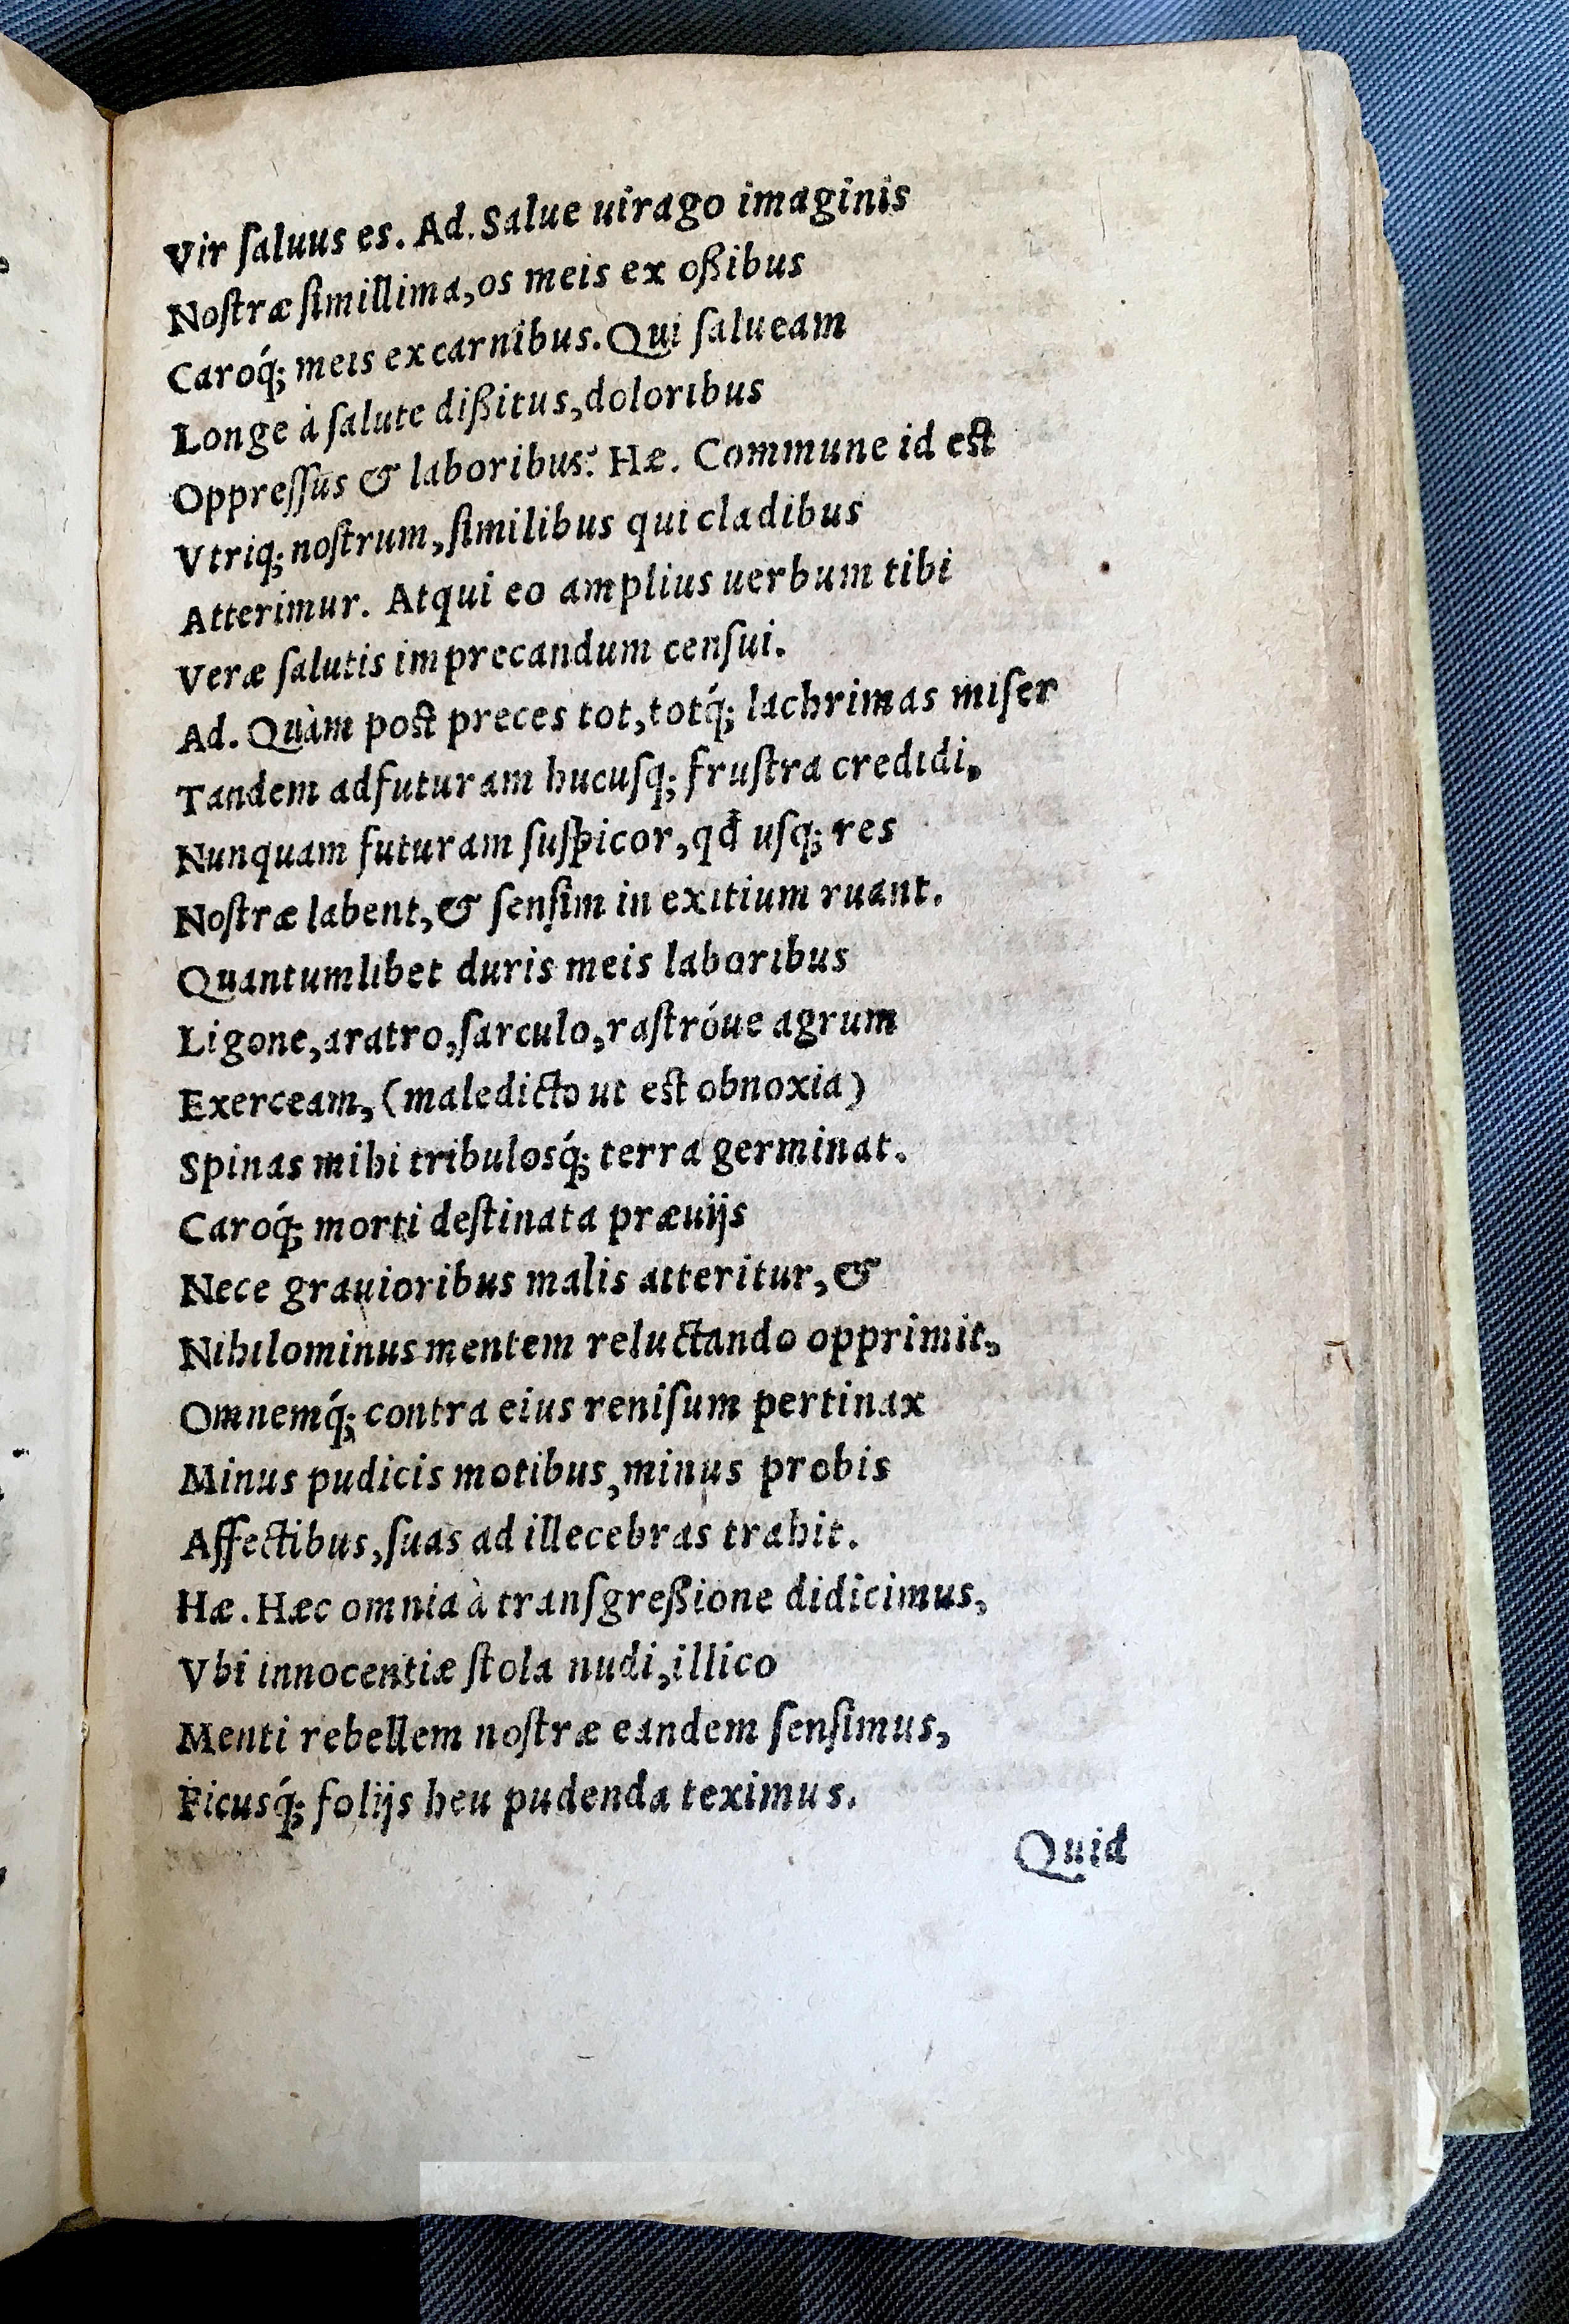 Vir ſaluus es. Ad. Salue uirago imaginis
Noſtræ ſimillima, os meis ex oßibus
Caroq́; meis ex carnibus. Qui ſalueam
Longe à ſalute dißitus, doloribus
Oppreſſus & laboribus? Hæ. Commune id eſt
Vtriq; noſtrum, ſimilibus qui cladibus
Atterimur. Atqui eo amplius uerbum tibi
Veræ ſalutis imprecandum cenſui.
Ad. Quàm poſt preces tot, totq́; lachrimas miſer
Tandem adfuturam hucuſq; fruſtra credidi,
Nunquam futuram ſuſpicor, qđ uſq; res
Noſtræ labent, & ſenſim in exitium ruant.
Quantumlibet duris meis laboribus
Ligone, aratro, ſarculo, raſtróue agrum
Exerceam, (maledicto ut eſt obnoxia)
Spinas mihi tribulosq́; terra germinat.
Caroq́; morti deſtinata præuijs
Nece grauioribus malis atteritur, &
Nihilominus mentem reluctando opprimit,
Omnemq́; contra eius reniſum pertinax
Minus pudicis motibus, minus probis
Affectibus, ſuas ad illecebras trahit.
Hæ. Hæc omnia à tranſgreßione didicimus,
Vbi innocentiæ ſtola nudi, illico
Menti rebellem noſtræ eandem ſenſimus,
Ficusq́; folijs heu pudenda teximus.
Quid